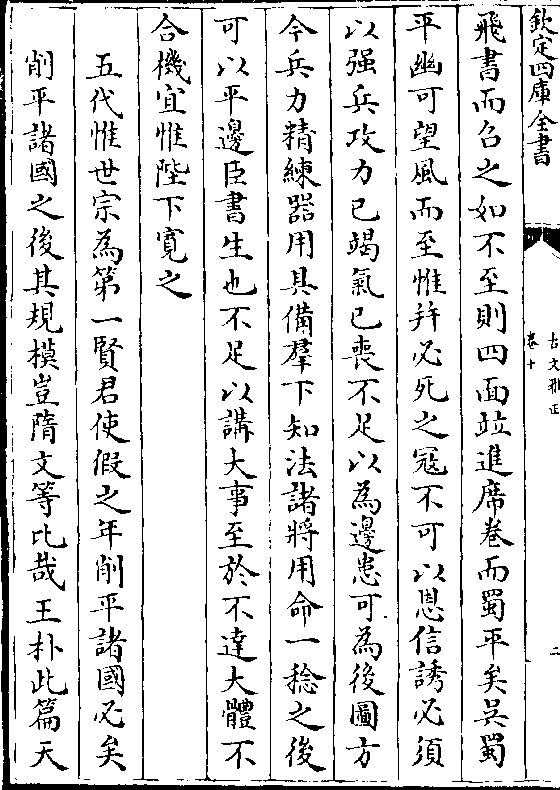 欽定四庫全書
古文雅正
卷十
二
飛書而召之如不至則四面竝進席卷而蜀平矣吳蜀
平幽可望風而至惟并必死之冦不可以恩信誘必須
以强兵攻力已竭氣已喪不足以為邊患可為後圖方
今兵力精練器用具備羣下知法諸將用命一稔之後
可以平邊臣書生也不足以講大事至於不達大體不
合機宜惟陛下寛之
五代惟世宗為第一賢君使假之年削平諸國必矣
削平諸國之後其規模豈隋文等比哉王朴此篇天